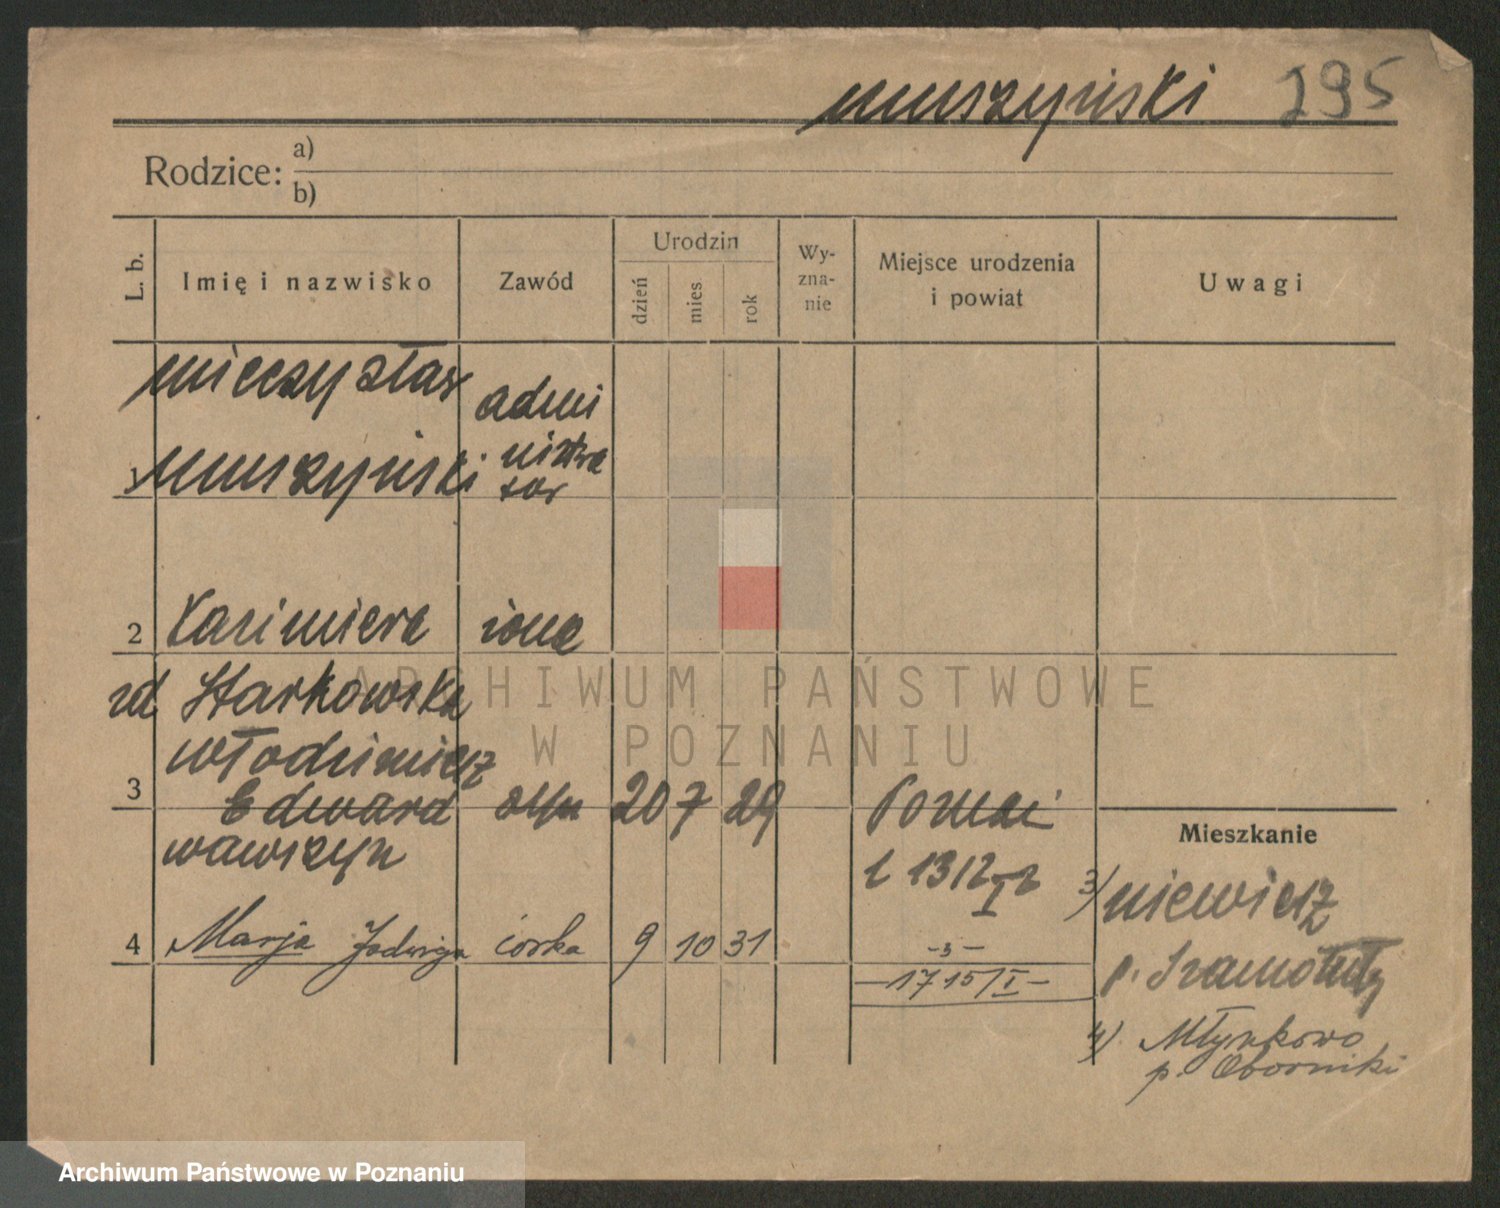 Muszyński 295
Rodzice: a)
b)
L. b.
Imię i nazwisko
Zawód
Urodzin
dzień
mies
rok
Wy-
zna-
nie
Miejsce urodzenia
i powiat
Uwagi
Mieczysław
admi
1 Muszyński nistra
tor
2 Kazimiera żona
zd Starkowska
Włodzimierz
3 Edward syn 20 7 29 Poznań
Wawrzyn
l 1312
I
4 Marja Jadwiga córka 9 10 31 -3-
-1715/I-
Mieszkanie
3) Niewierz
p. Szamotuły
4) Młynkowo
p. Oborniki
ARCHIWUM PAŃSTWOWE
W POZNANIU
Archiwum Państwowe w Poznaniu